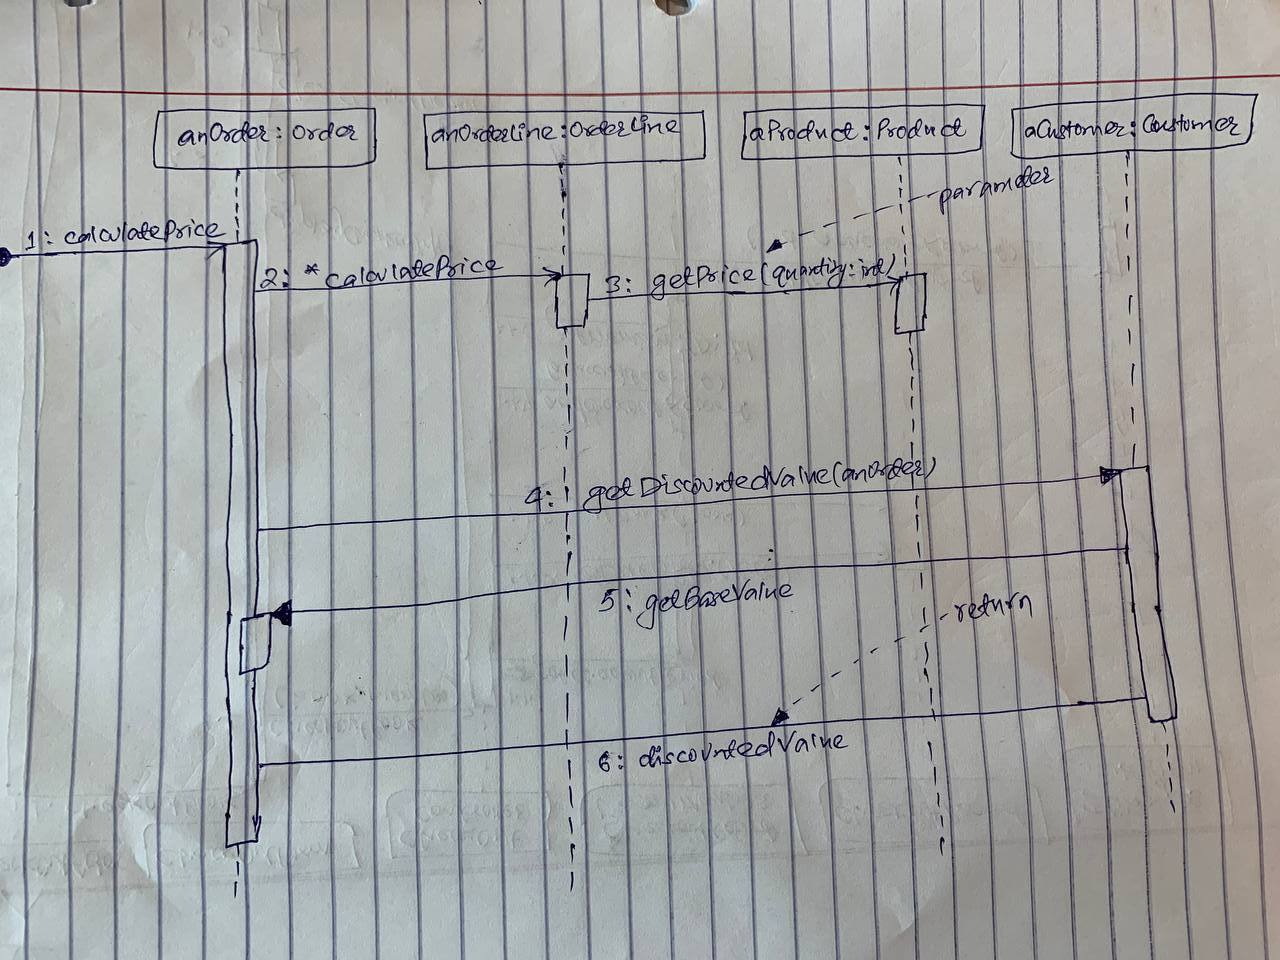 anOrder: Order
anOrderLine:OrderLine
aProduct: Product
aCustomer: Customer
parameter
1: calculatePrice
2: * calculatePrice
3: getPrice(quantity:int)
4: getDiscountedValue(anOrder)
5: getBaseValue
return
6: discountedValue